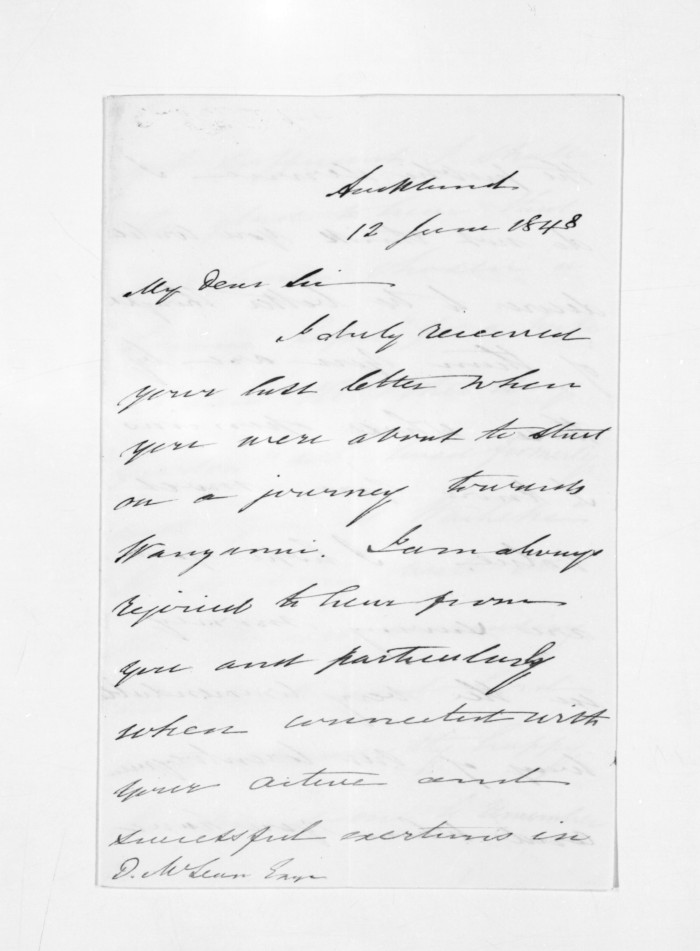 Auckland
12 June 1848
My Dear Sir
I duly received
your last letter when
you were about to start
on a journey towards
Wanganui. I am always
rejoiced to hear from
you and particularly
when connected with
your active and
successful exertions in
D. McLean Esqr